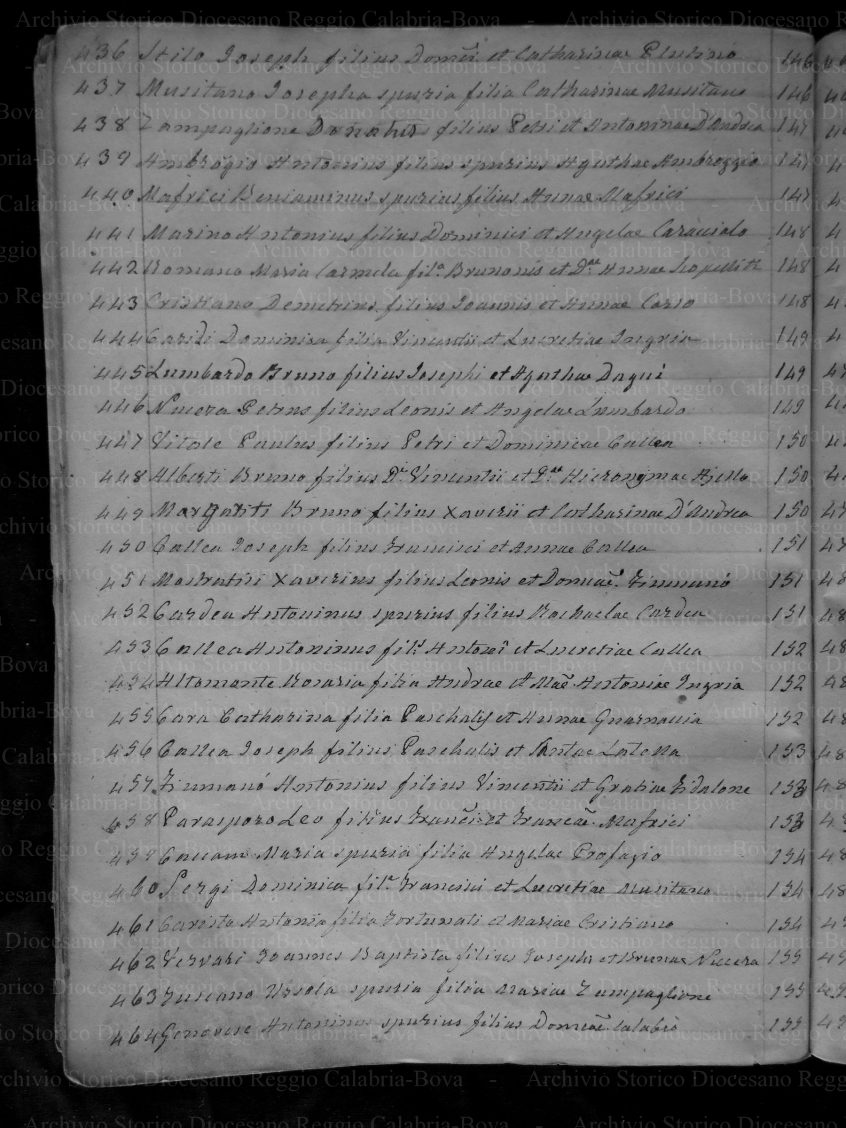 436 Stilo Joseph filius Domci et Catharinae Plutino 146
437 Musitano Josepha spuria filia Catharinae Musitano 146
438 Zampaglione Donatus filius Petri et Antoninae D'Andrea 147
439 Ambrogio Antonius filius spurius Agathae Ambroggio 147
440 Mafrici Beniaminus spurius filius Annae Mafrici 147
441 Marino Antonius filius Dominici et Angelae Caracciolo 148
442 Romano Maria Carmela fila Brunonis et Dae Annae 148
443 Cristiano Demetrius filius Joannis et Annae Corso 148
444 Caridi Dominica filia Vincentii et Lucretiae Ingria 149
445 Lumbardo Bruno filius Josephi et Agathae Dagui 149
446 Nucera Petrus filius Leonis et Angelae Lumbardo 149
447 Vitale Paulus filius Petri et Dominicae Callea 150
448 Alberti Bruno filius Dr Vincentii et Dae Hieronymae Ajello 150
449 Margariti Bruno filius Xaverii et Catharinae D'Andrea 150
450 Callea Joseph filius Francisci et Annae Callea 151
451 Xaverius filius Leonis et 151
452 Cardea Antoninus spurius filius Rachaelae Cardea 151
453 Callea Antoninus fils Antoni et Lucretiae Callea 152
454 Altomonte Rosaria filia Andrae et Mae Antoniae Ingria 152
455 Cara Catharina filia Paschalis et Annae Guarnaccia 152
456 Callea Joseph filius Paschalis et Santae Latella 153
457 Antonius filius Vincentii et Gratiae Fidalone 153
458 Parasporo Leo filius Franci et Francae Mafrici 153
459 Maria spuria filia Angelae Profazio 154
460 Sergi Dominica fila Francisci et Lucretiae Musitano 154
461 Antonia filia Fortunati et Mariae Cristiano 154
462 Vervari Joannes Baptista filius Josephi et Brunae Nucera 155
463 Tuscano Ursola spuria filia Mariae Zampaglione 155
464 Genovese Antoninus spurius filius Domcae Calabrò 155
Archivio Storico Diocesano Reggio Calabria-Bova